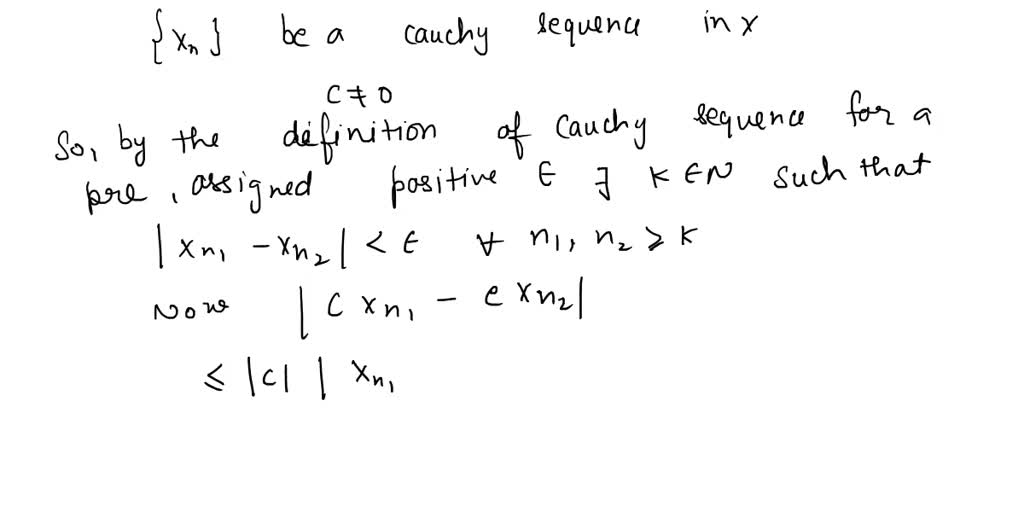 {xn} be a cauchy sequence in x
c ≠ 0
So, by the definition of Cauchy sequence for a
pre, assigned positive ∈ ∃ K ∈ N such that
|xn₁ - xn₂| < ∈ ∀ n₁, n₂ ≥ K
Now |c xn₁ - c xn₂|
≤ |c| | xn₁